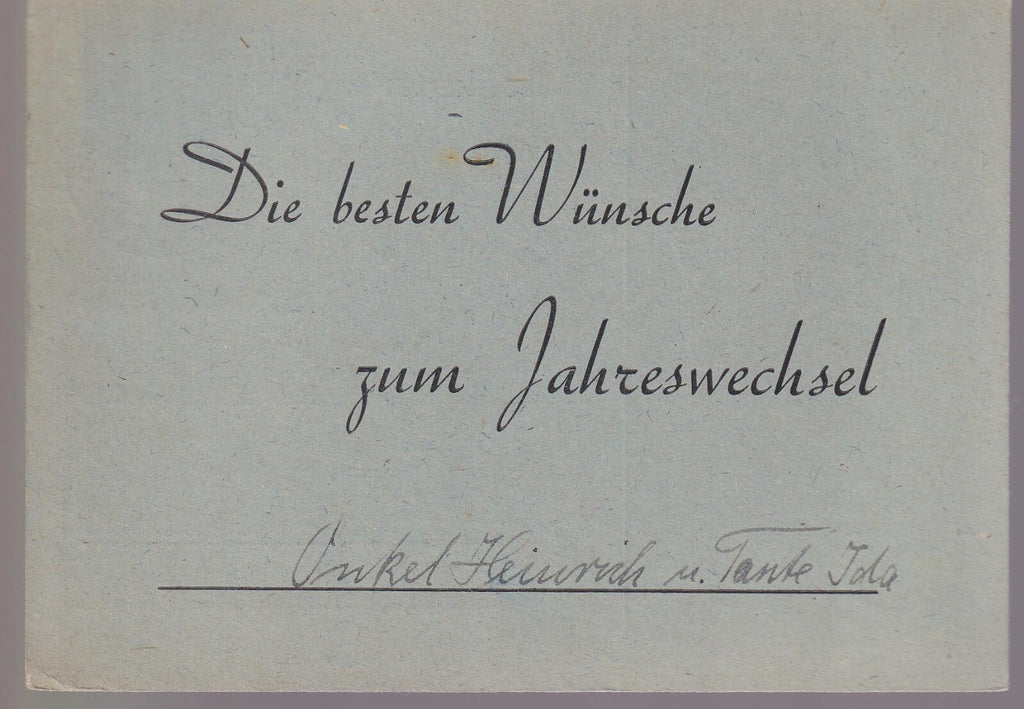 Die besten Wünsche
zum Jahreswechsel
Onkel Heinrich u. Tante Ida